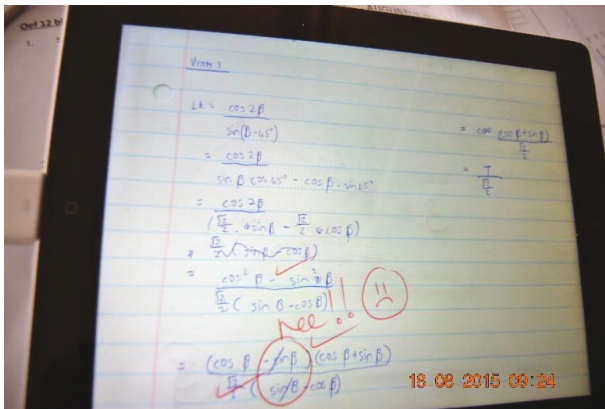 Def 12 b
AUGUSTUS
1.
Vraag 3
LK = cos 2β
sin(β-45°)
= cos 2β
sin β cos 45° - cos β . sin 45°
= cos 2β
(√2/2 . sin β - √2/2 cos β)
√2/2 (sin β - cos β)
= cos² β - sin² β
√2/2 ( sin β - cos β)
Nee !!
= (cos β - sin β) (cos β + sin β)
√2/2 ( sin β - cos β)
= cos β + sin β)
√2/2
= T
√2/2
18 08 2015 09:24